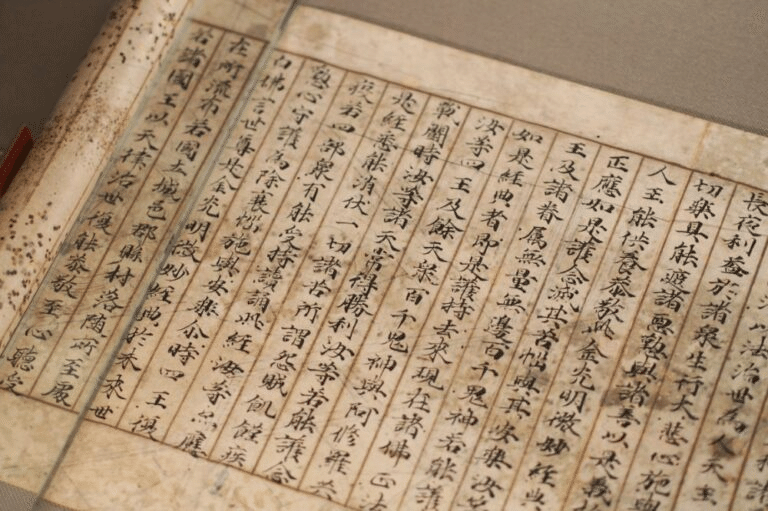 以法治世為人天王
長夜利益於諸衆生行大悲心施與
切樂具能遮諸惡懃與諸善以是義
人王能供養恭敬此金光明微妙經典
正應如是護念滅其苦惱與其安樂汝
王及諸眷屬無量無邊百千鬼神若能護
如是經典者即是護持去來現在諸佛正法
汝等四王及餘天衆百千鬼神與阿修羅共
戰鬪時汝等諸天常得勝利汝等若能護念
此經悉能消伏一切諸苦所謂怨賊飢饉疾
疫若四部衆有能受持讀誦此經汝等亦應
懃心守護為除衰惱施與安樂尒時四王復
白佛言世尊是金光明微妙經典於未來世
在所流布若國土城邑郡縣村落隨所至處
若諸國王以天律治世復能恭敬至心聽受